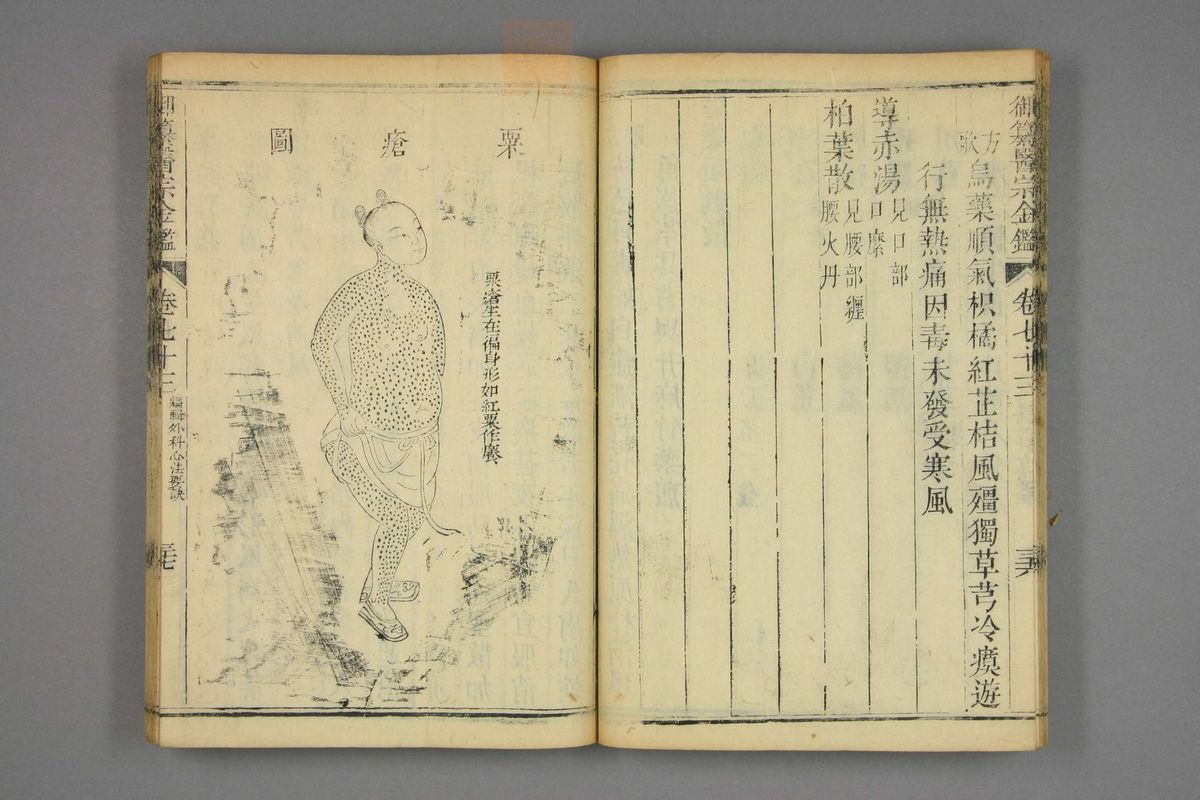 御纂醫宗金鑑 卷七十三 三六
方歌
烏藥順氣枳橘紅芷桔風殭獨草芎冷瘼遊
行無熱痛因毒未發受寒風
導赤湯見口部
口糜
柏葉散見腰部纒
腰火丹
粟瘡圖
粟瘡生在徧身形如紅粟作癢
御纂醫宗金鑑 卷七十三 編輯外科心法要訣 三七